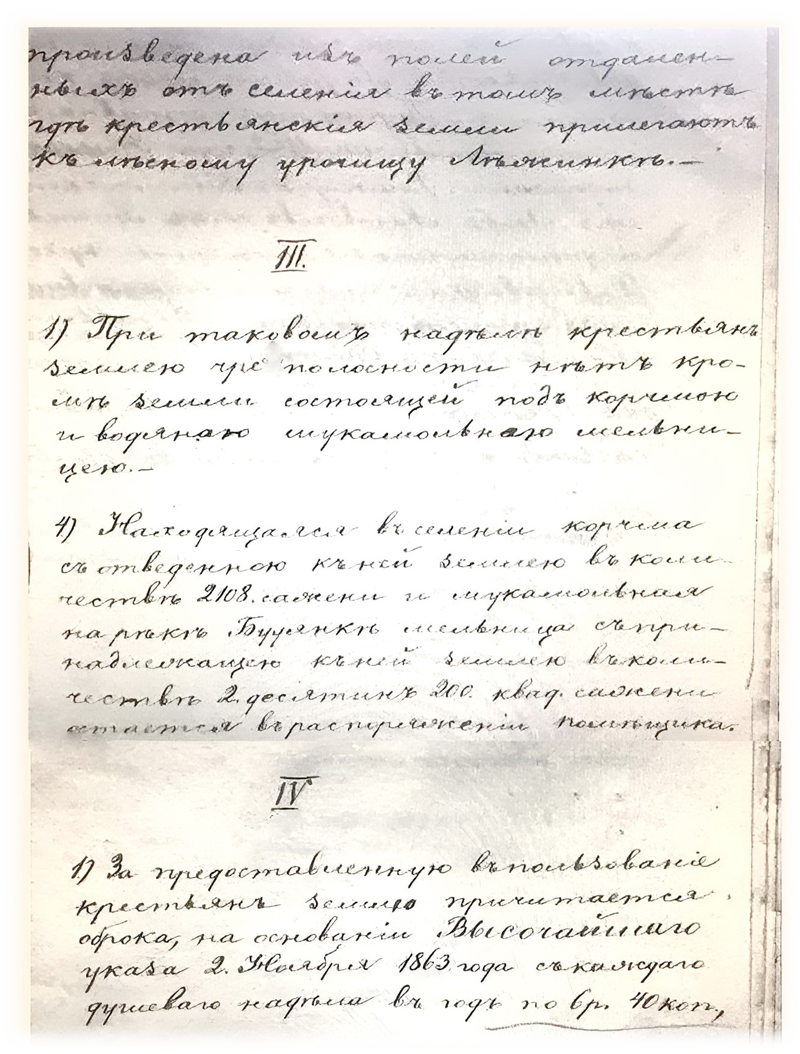 произведена изъ полей отдален-
ныхъ отъ селенія въ томъ мѣстѣ
гдѣ крестьянскія земли прилегаютъ
къ лѣсному урочищу Лѣжинкѣ.—
III.
1) При таковомъ надѣлѣ крестьянъ
землею чрезполосности нѣтъ кро-
мѣ земли состоящей подъ корчмою
и водяною мукамольною мельни-
цею.—
4) Находящаяся въ селеніи корчма
съ отведенною къ ней землею въ коли-
чествѣ 2108. сажени и мукамольная
на рѣкѣ Бушанкѣ мельница съ при-
надлежащею къ ней землею въ коли-
чествѣ 2. десятинъ 200. квад. сажени
остается въ распоряженіи помѣщика.
IV
1) За предоставленную въ пользованіе
крестьянъ землю причитается
оброка, на основаніи Высочайшаго
указа 2. Ноября 1863. года съ каждаго
душеваго надѣла въ годъ по 6р. 40 коп,